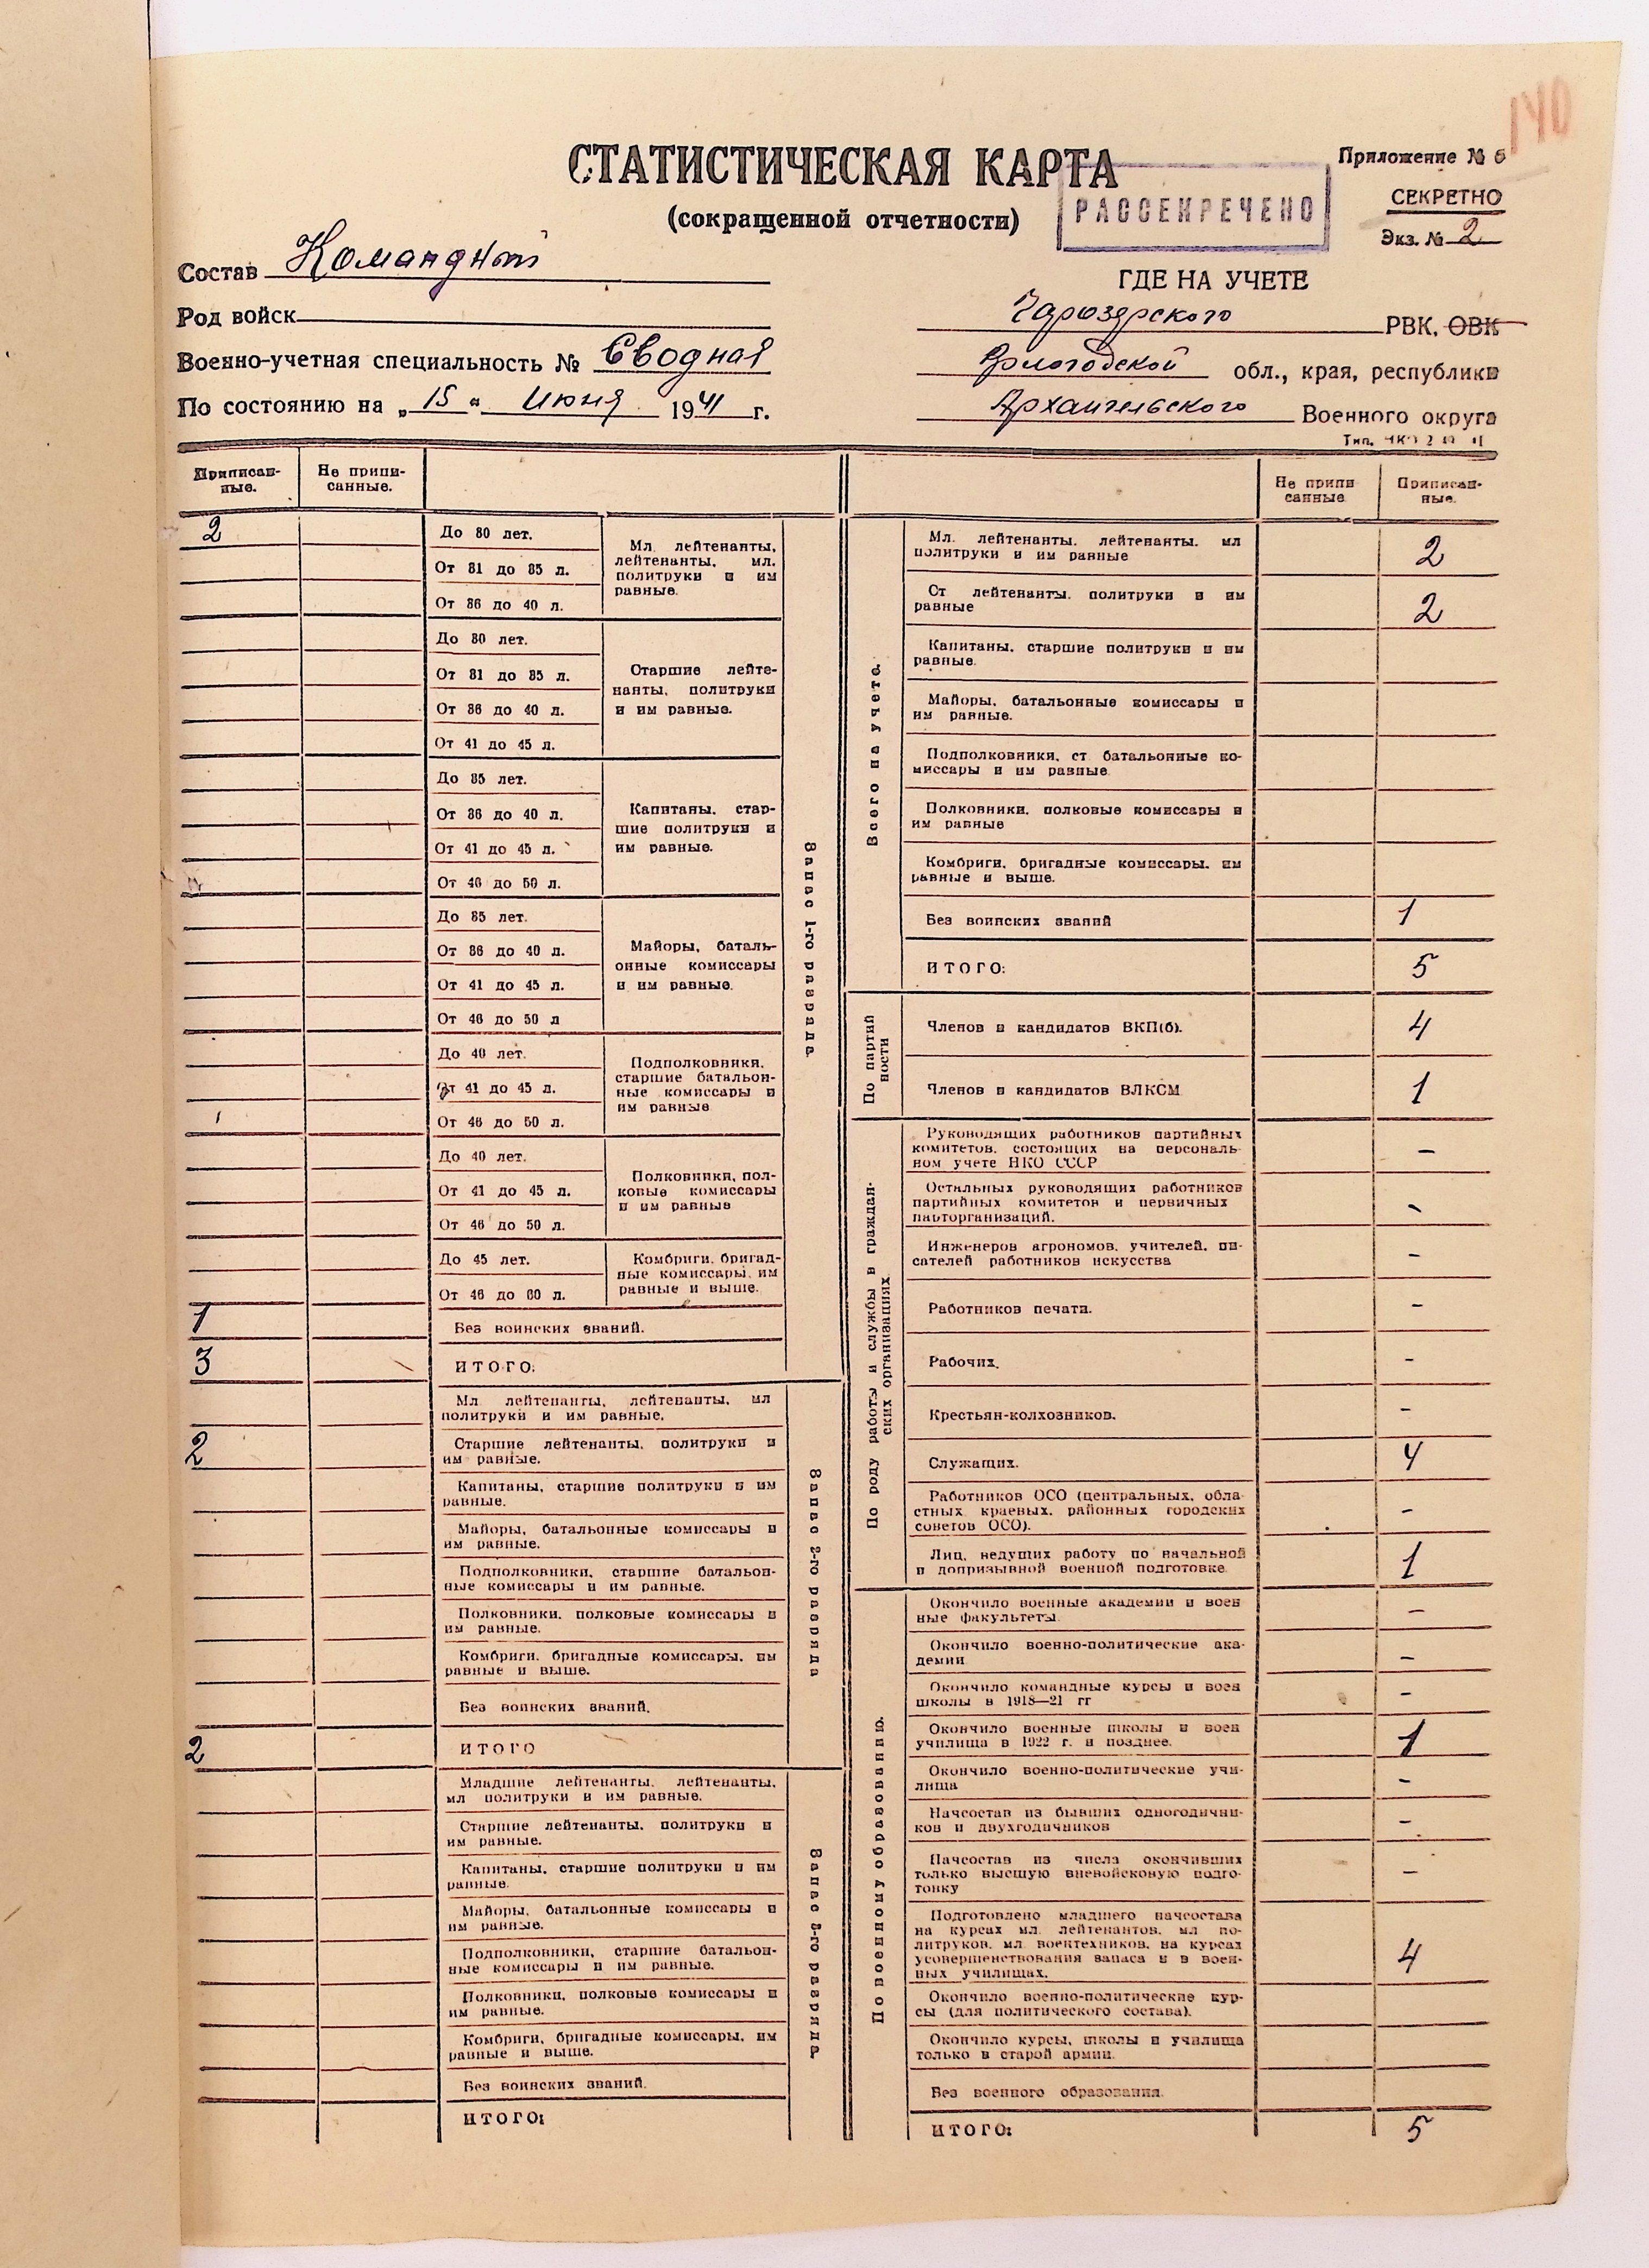 140
СТАТИСТИЧЕСКАЯ КАРТА
(сокращенной отчетности)
РАССЕКРЕЧЕНО
Приложение №
СЕКРЕТНО
Экз. № 2
Состав Командный
Род войск
Военно-учетная специальность № Сводная
По состоянию на „15“ Июня 1941 г.
ГДЕ НА УЧЕТЕ
Чарозерского РВК, ОВК
Вологодской обл., края, республики
Архангельского Военного округа
Приписан-
ные.
Не припи-
санные.
2
До 30 лет.
От 31 до 35 л.
От 36 до 40 л.
Мл. лейтенанты,
лейтенанты, мл.
политруки и им
равные.
До 30 лет.
От 31 до 35 л.
От 36 до 40 л.
От 41 до 45 л.
Старшие лейте-
нанты, политруки
и им равные.
До 35 лет.
От 36 до 40 л.
От 41 до 45 л.
От 46 до 50 л.
Капитаны, стар-
шие политруки и
им равные.
До 35 лет.
От 36 до 40 л.
От 41 до 45 л.
От 46 до 50 л
Майоры, баталь-
онные комиссары
и им равные.
До 40 лет.
От 41 до 45 л.
От 46 до 50 л.
Подполковники,
старшие батальон-
ные комиссары и
им равные
До 40 лет.
От 41 до 45 л.
От 46 до 50 л.
Полковники, пол-
ковые комиссары
и им равные
До 45 лет.
От 46 до 60 л.
Комбриги, бригад-
ные комиссары, им
равные и выше.
1
Без воинских званий.
3
ИТОГО:
Запас 1-го разряда.
Мл лейтенанты, лейтенанты, мл
политруки и им равные.
2
Старшие лейтенанты, политруки и
им равные.
Капитаны, старшие политруки и им
равные.
Майоры, батальонные комиссары и
им равные.
Подполковники, старшие батальон-
ные комиссары и им равные.
Полковники, полковые комиссары и
им равные.
Комбриги, бригадные комиссары, им
равные и выше.
Без воинских званий.
2
ИТОГО
Запас 2-го разряда
Младшие лейтенанты, лейтенанты,
мл политруки и им равные.
Старшие лейтенанты, политруки и
им равные.
Капитаны, старшие политруки и им
равные.
Майоры, батальонные комиссары и
им равные.
Подполковники, старшие батальон-
ные комиссары и им равные.
Полковники, полковые комиссары и
им равные.
Комбриги, бригадные комиссары, им
равные и выше.
Без воинских званий.
ИТОГО:
Запас 3-го разряда.
Не припи
санные
Приписан-
ные.
Всего на учете.
Мл. лейтенанты, лейтенанты, мл
политруки и им равные
2
Ст лейтенанты, политруки и им
равные
2
Капитаны, старшие политруки и им
равные.
Майоры, батальонные комиссары и
им равные.
Подполковники, ст батальонные ко-
миссары и им равные
Полковники, полковые комиссары и
им равные
Комбриги, бригадные комиссары, им
равные и выше.
Без воинских званий
1
ИТОГО:
5
По партий
ности
Членов и кандидатов ВКП(б).
4
Членов и кандидатов ВЛКСМ
1
По роду работы и службы в граждан-
ских организациях
Руководящих работников партийных
комитетов, состоящих на персональ-
ном учете НКО СССР
-
Остальных руководящих работников
партийных комитетов и первичных
парторганизаций.
-
Инженеров агрономов, учителей, пи-
сателей работников искусства
-
Работников печати.
-
Рабочих.
-
Крестьян-колхозников.
-
Служащих.
4
Работников ОСО (центральных, обла-
стных краевых, районных городских
советов ОСО).
-
Лиц, ведущих работу по начальной
и допризывной военной подготовке
1
По военному образованию.
Окончило военные академии и воен
ные факультеты
-
Окончило военно-политические ака-
демии
-
Окончило командные курсы и воен
школы в 1918—21 гг
-
Окончило военные школы и воен
училища в 1922 г. и позднее.
1
Окончило военно-политические учи-
лища
-
Начсостав из бывших одногодични-
ков и двухгодичников
-
Начсостав из числа окончивших
только высшую вневойсковую подго-
товку
-
Подготовлено младшего начсостава
на курсах мл. лейтенантов, мл по-
литруков, мл. воентехников, на курсах
усовершенствования запаса и в воен-
ных училищах.
4
Окончило военно-политические кур-
сы (для политического состава).
Окончило курсы, школы и училища
только в старой армии.
Без военного образования.
ИТОГО:
5